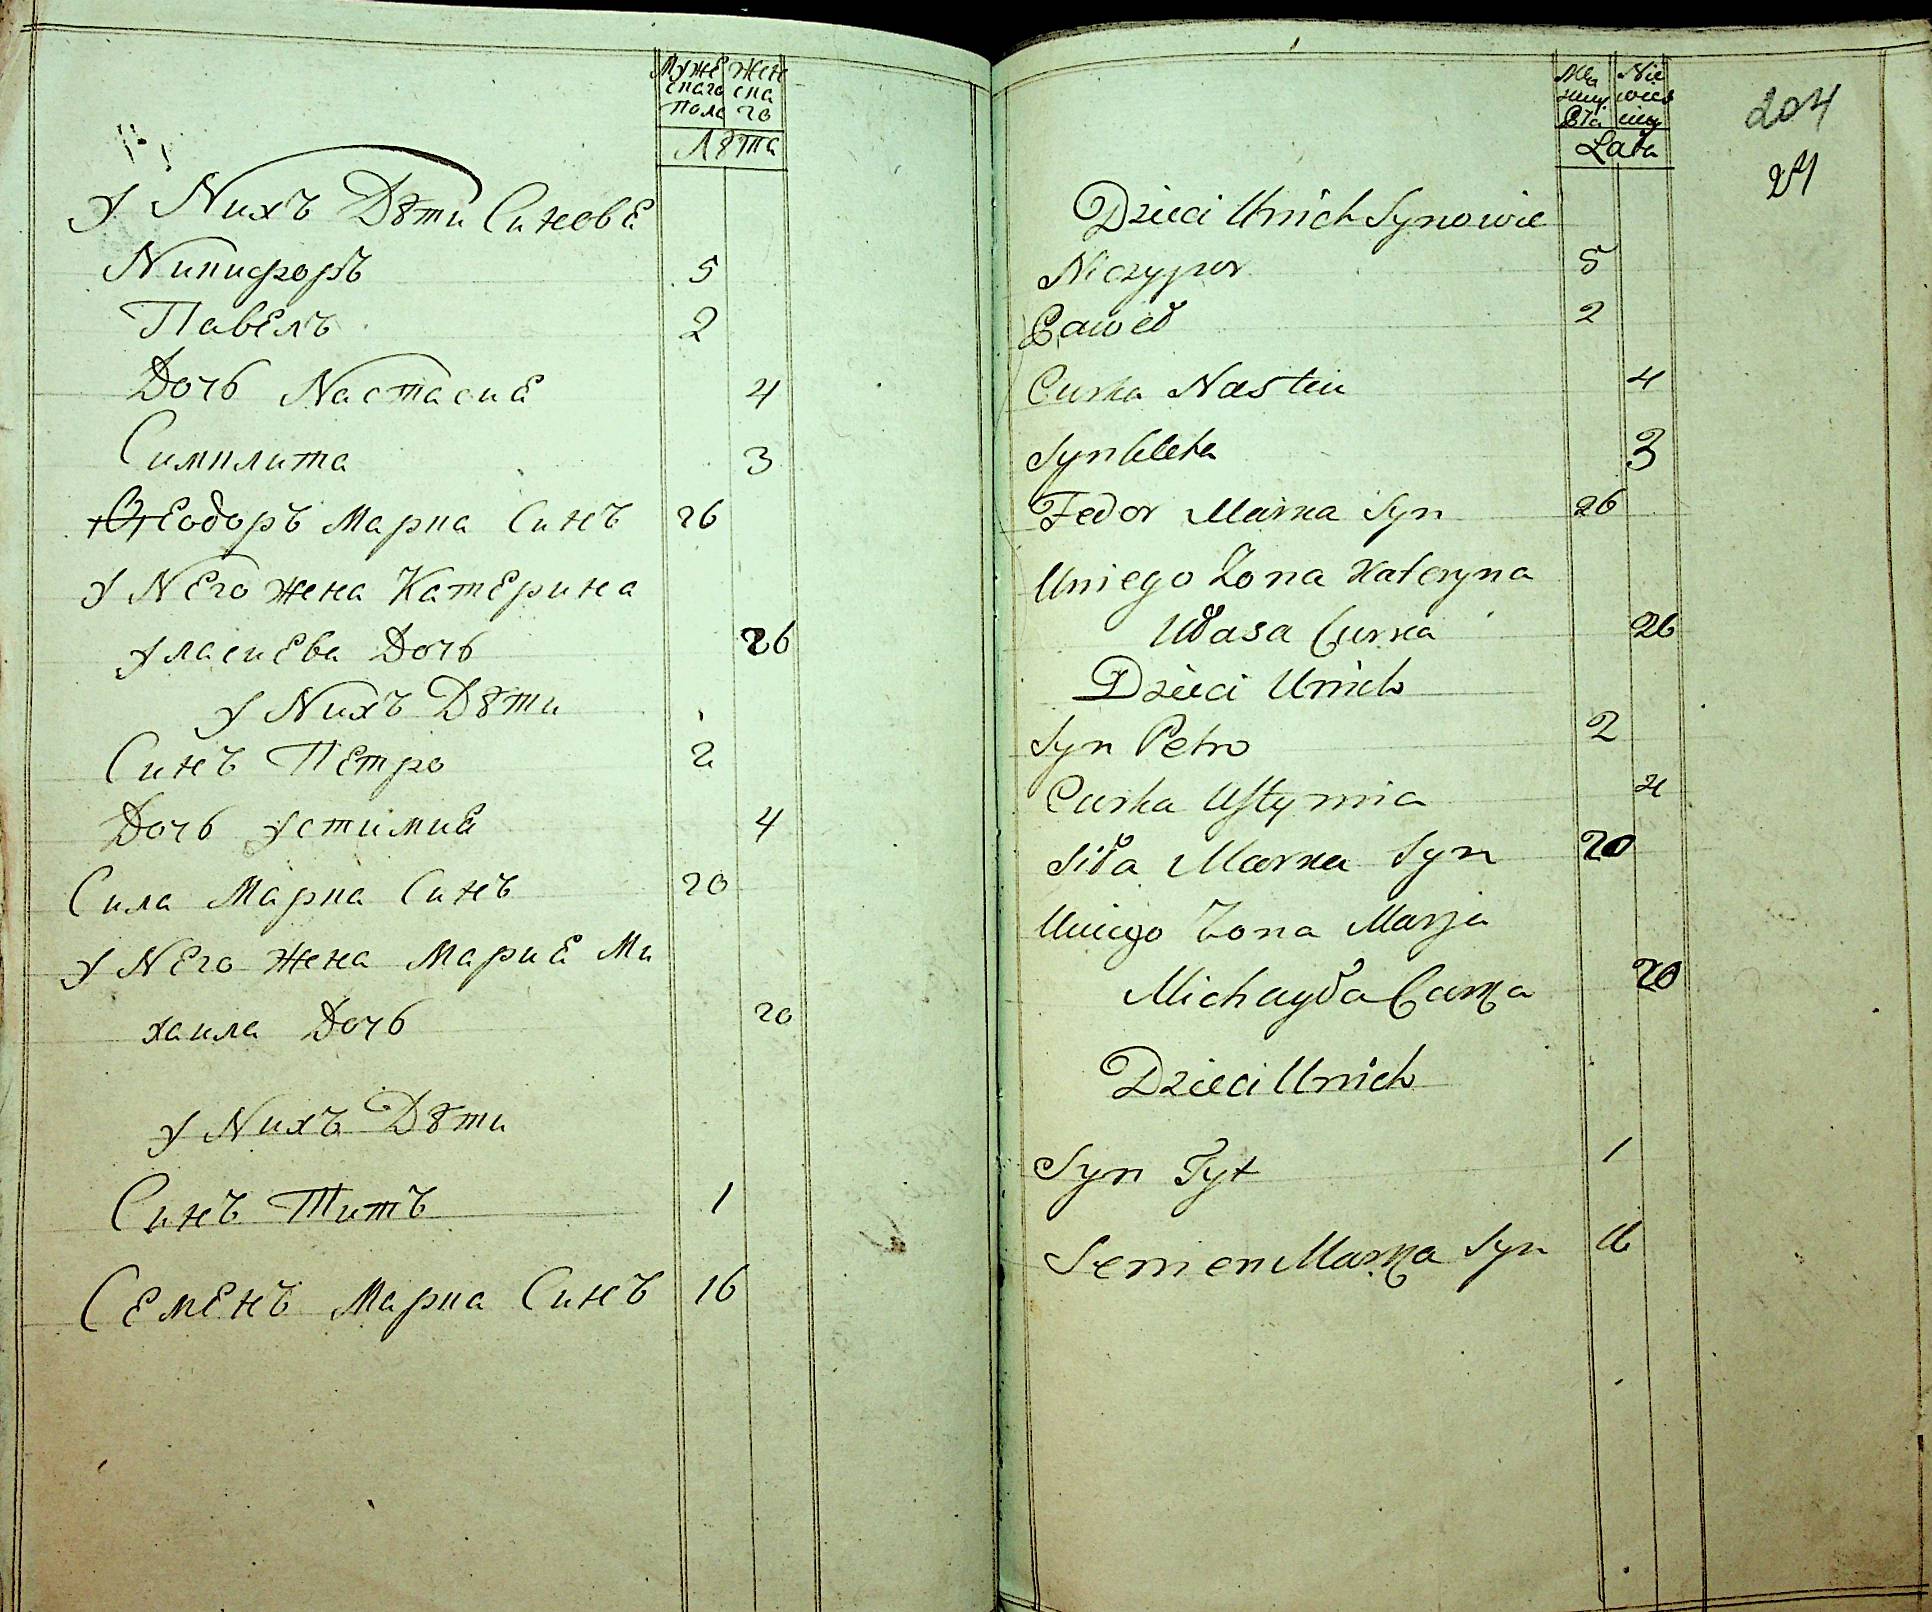 Муже Жен
скаго ска
Пола го
Лѣта
У Nихъ Дѣти Синовє
Nикифоръ 5
Павелъ 2
Дочь Nастасиє 4
Симклита 3
Ѳеодоръ Марка Синъ 26
У Nего жена Катерина
Уласиева Дочь 26
У Nихъ Дѣти
Синъ Петро 2
Дочь Устимиє 4
Сила Марка Синъ 20
У Nего жена Мариє Ми
хаила Дочь 20
У Nихъ Дѣти
Синъ Титъ 1
Семенъ Марка Синъ 16
204
24
Lata
Dzieci Unich Synowie
Niczypor 5
Paweł 2
Curka Nastia 4
Synkleta 3
Fedor Marka Syn 26
Uniego Zona Kateryna
Ułasa Curka 26
Dzieci Unich
Syn Petro 2
Curka Ustymia 4
Siła Marka Syn 20
Uniego Zona Marja
Michayła Curka 20
Dzieci Unich
Syn Tyt 1
Semen Marka Syn 16